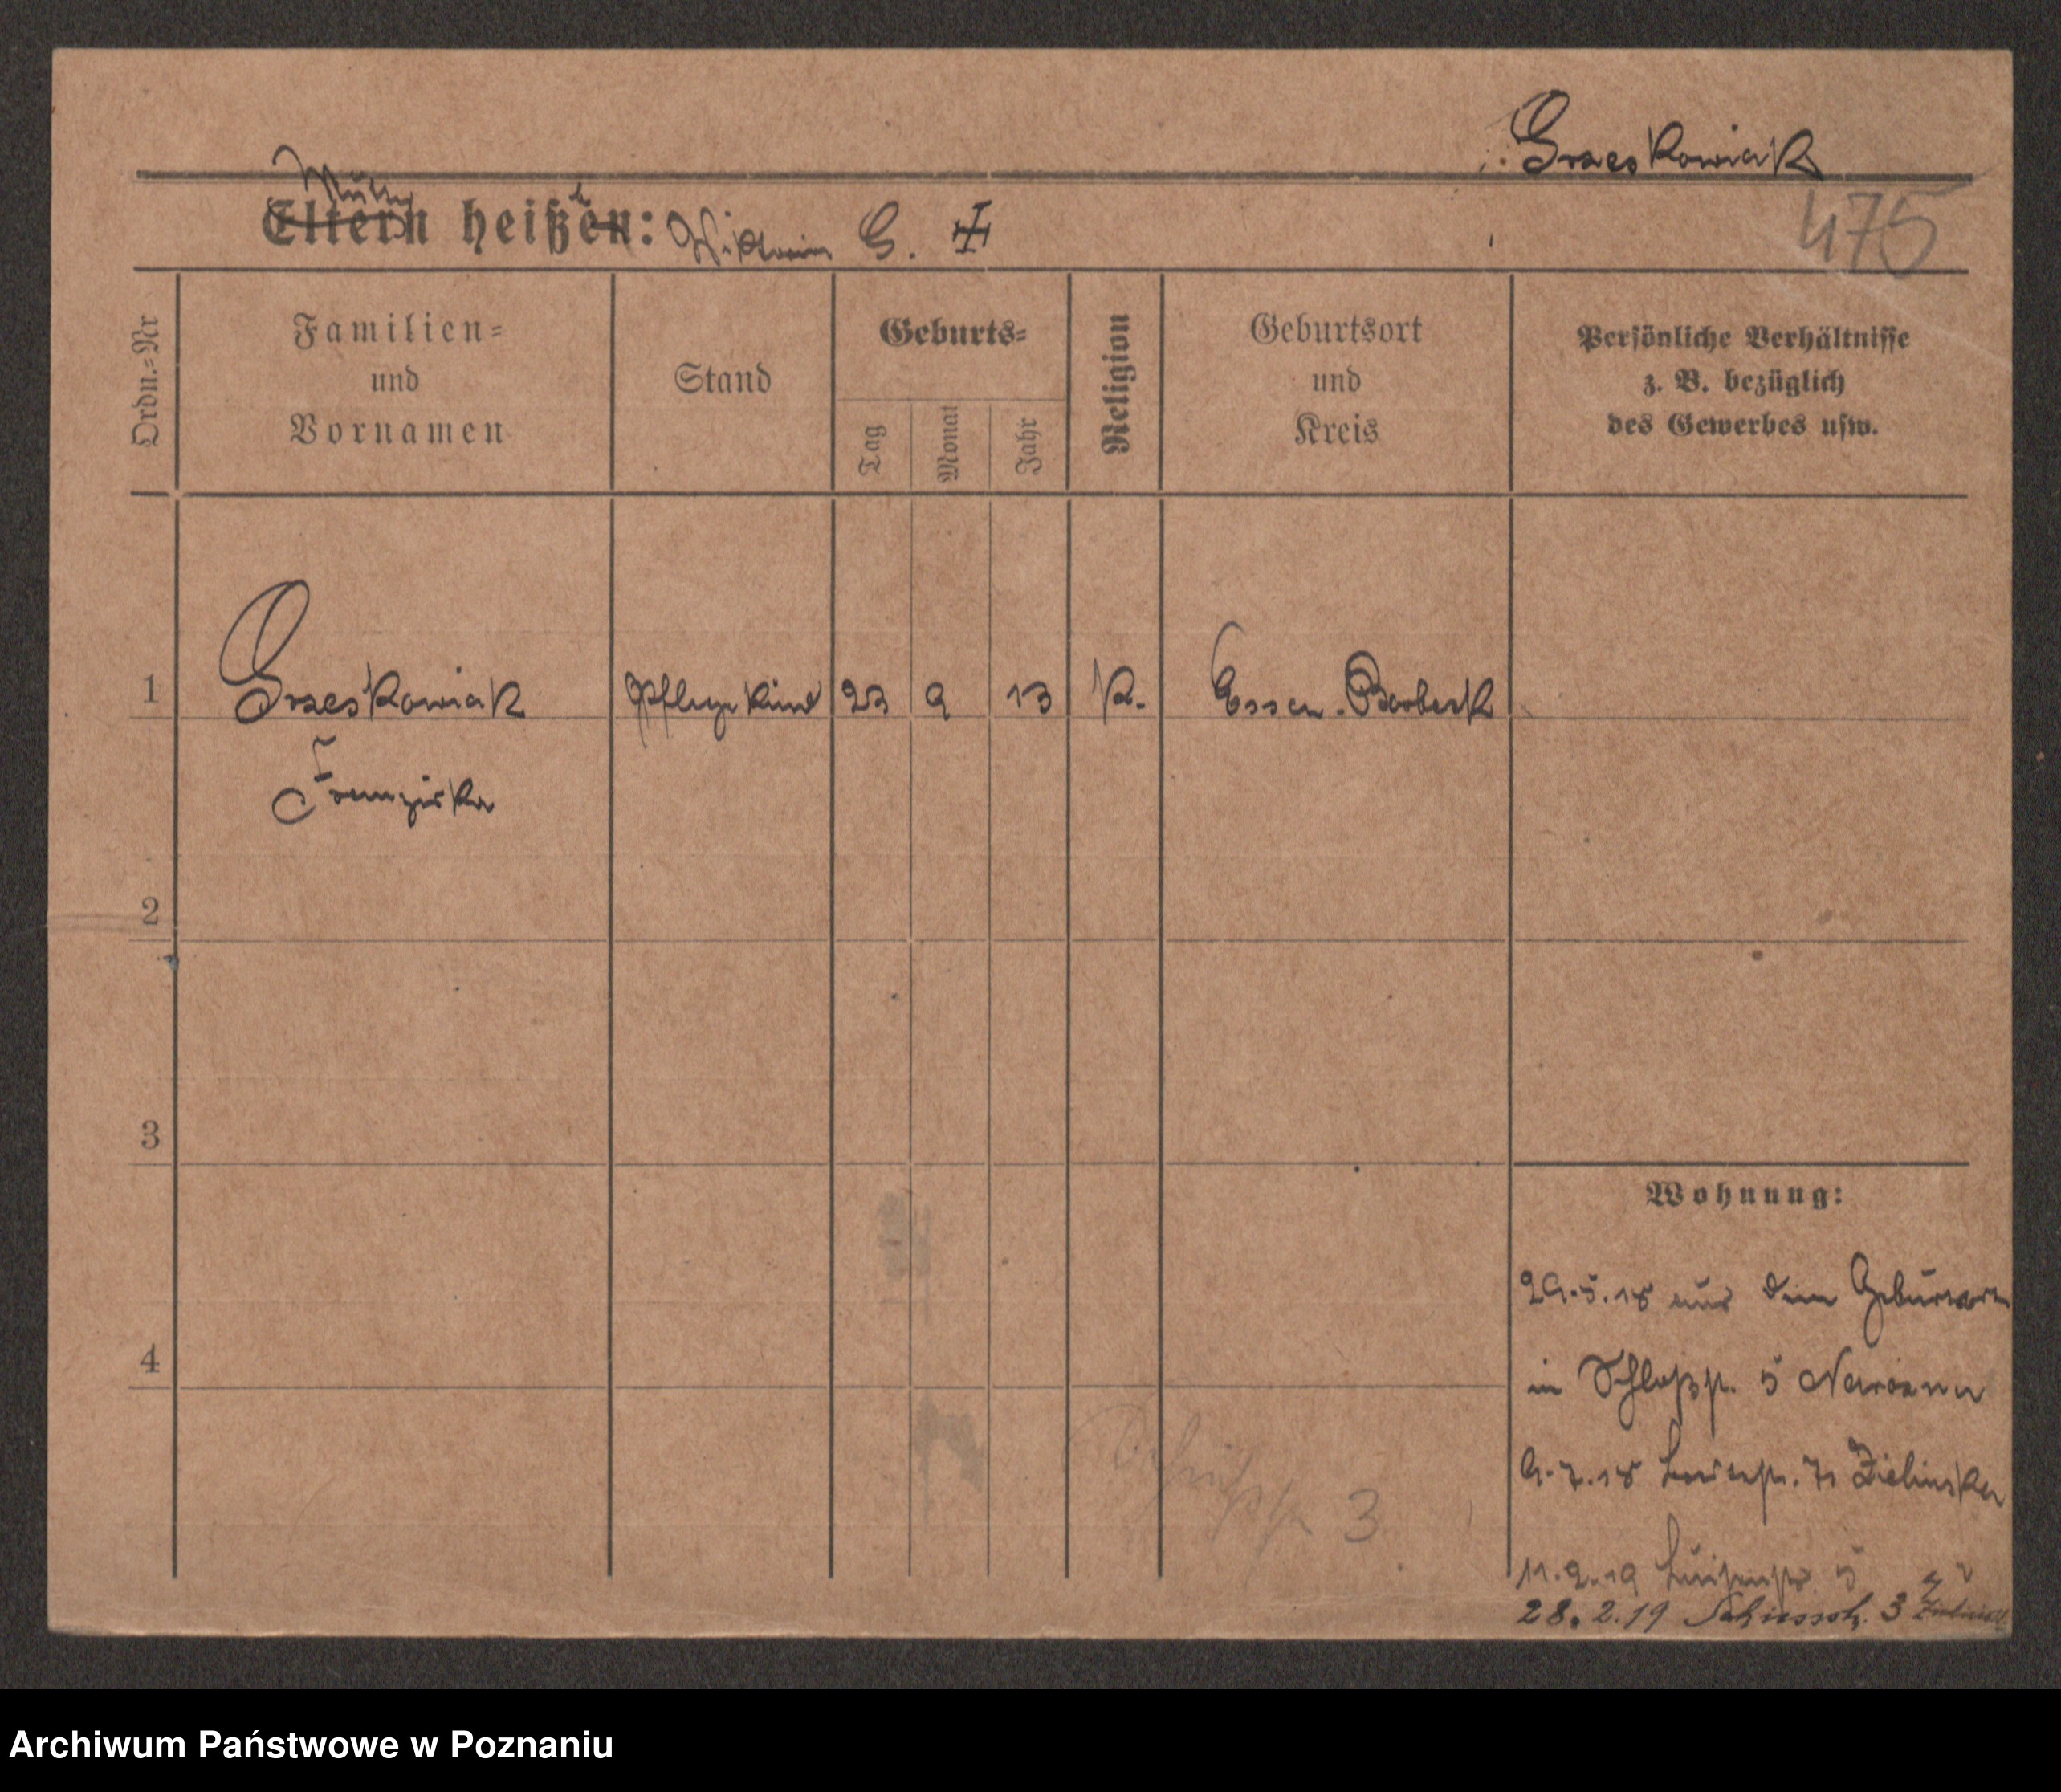 Grzeskowiak
Mutter
Eltern heißen: t Wiktoria G. ‡
475
Ordn.=Nr
Familien=
und
Vornamen
Stand
Geburts=
Tag
Monat
Jahr
Religion
Geburtsort
und
Kreis
Persönliche Verhältnisse
z. B. bezüglich
des Gewerbes usw.
1
Grzeskowiak Pflegekind 23 9 13 K. Essen-Borbeck
Franziska
2
3
4
Wohnung:
29.5.18 aus dem Geburtsort
in Schloßstr. 5
9.7.18 71 Zielinska
11.2.19 Luisenstr. 5
28.2.19 3
3
Archiwum Państwowe w Poznaniu